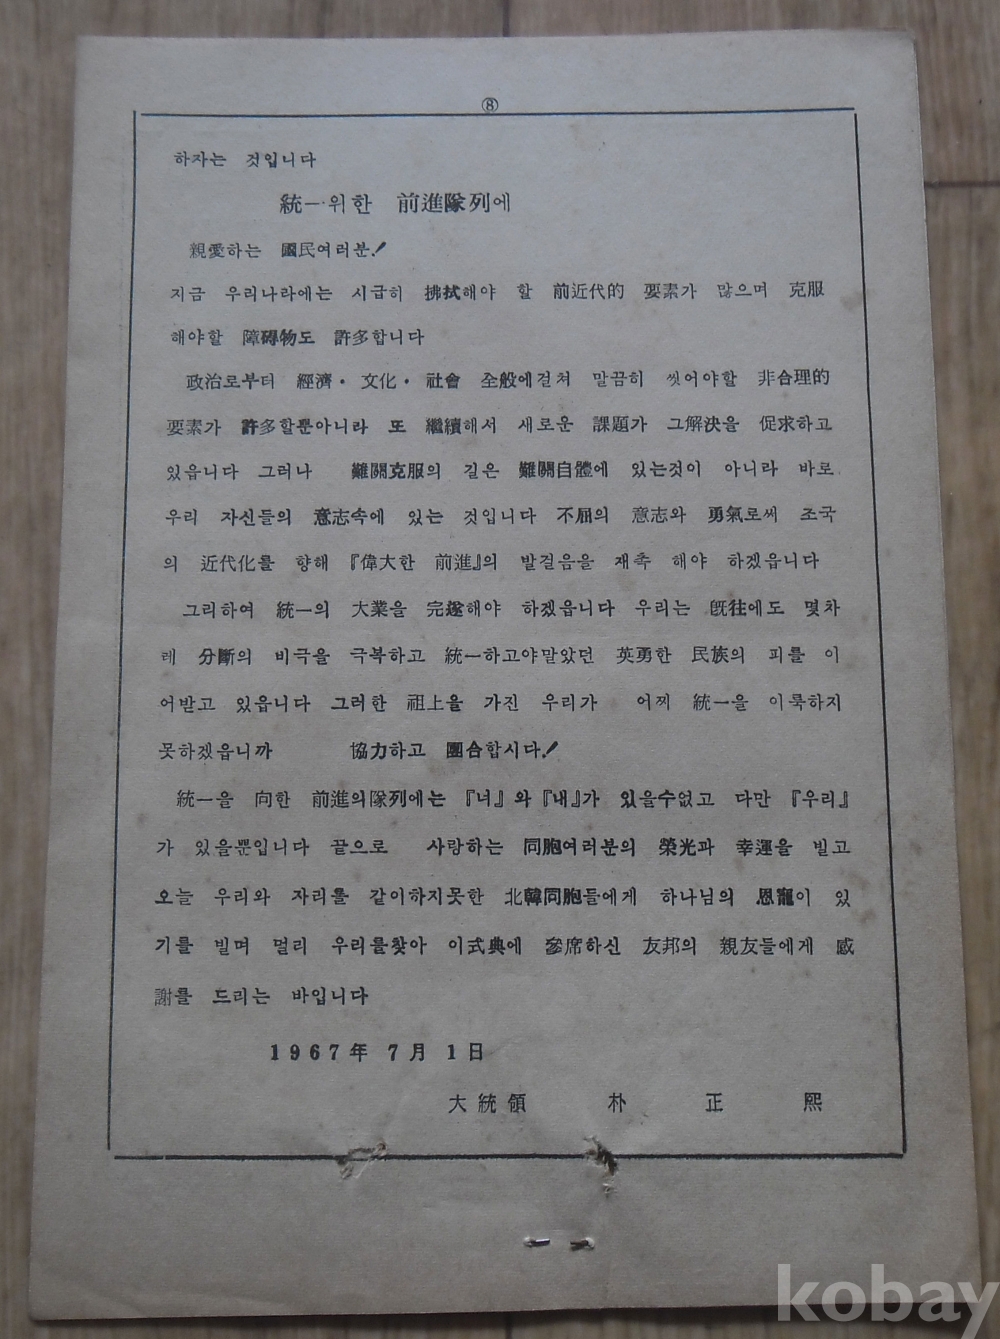 ⑧
하자는 것입니다
統一위한 前進隊列에
親愛하는 國民여러분!
지금 우리나라에는 시급히 拂拭해야 할 前近代的 要素가 많으며 克服
해야할 障碍物도 許多합니다
政治로부터 經濟・文化・社會 全般에걸쳐 말끔히 씻어야할 非合理的
要素가 許多할뿐아니라 또 繼續해서 새로운 課題가 그解決을 促求하고
있읍니다 그러나 難關克服의 길은 難關自體에 있는것이 아니라 바로
우리 자신들의 意志속에 있는 것입니다 不屈의 意志와 勇氣로써 조국
의 近代化를 향해 『偉大한 前進』의 발걸음을 재촉 해야 하겠읍니다
그리하여 統一의 大業을 完遂해야 하겠읍니다 우리는 旣往에도 몇차
레 分斷의 비극을 극복하고 統一하고야말았던 英勇한 民族의 피를 이
어받고 있읍니다 그러한 祖上을 가진 우리가 어찌 統一을 이룩하지
못하겠읍니까 協力하고 團合합시다!
統一을 向한 前進의隊列에는 『너』와 『내』가 있을수없고 다만 『우리』
가 있을뿐입니다 끝으로 사랑하는 同胞여러분의 榮光과 幸運을 빌고
오늘 우리와 자리를 같이하지못한 北韓同胞들에게 하나님의 恩寵이 있
기를 빌며 멀리 우리를찾아 이式典에 參席하신 友邦의 親友들에게 感
謝를 드리는 바입니다
1967年 7月 1日
大統領 朴正熙
kobay